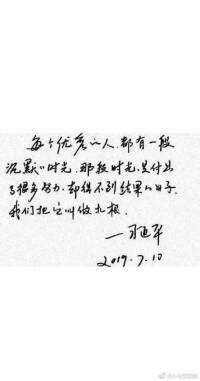 每个优秀的人,都有一段
沉默的时光。那段时光,是付出
了很多努力,却得不到结果的日子,
我们把它叫做扎根。
—习近平
2019.7.10